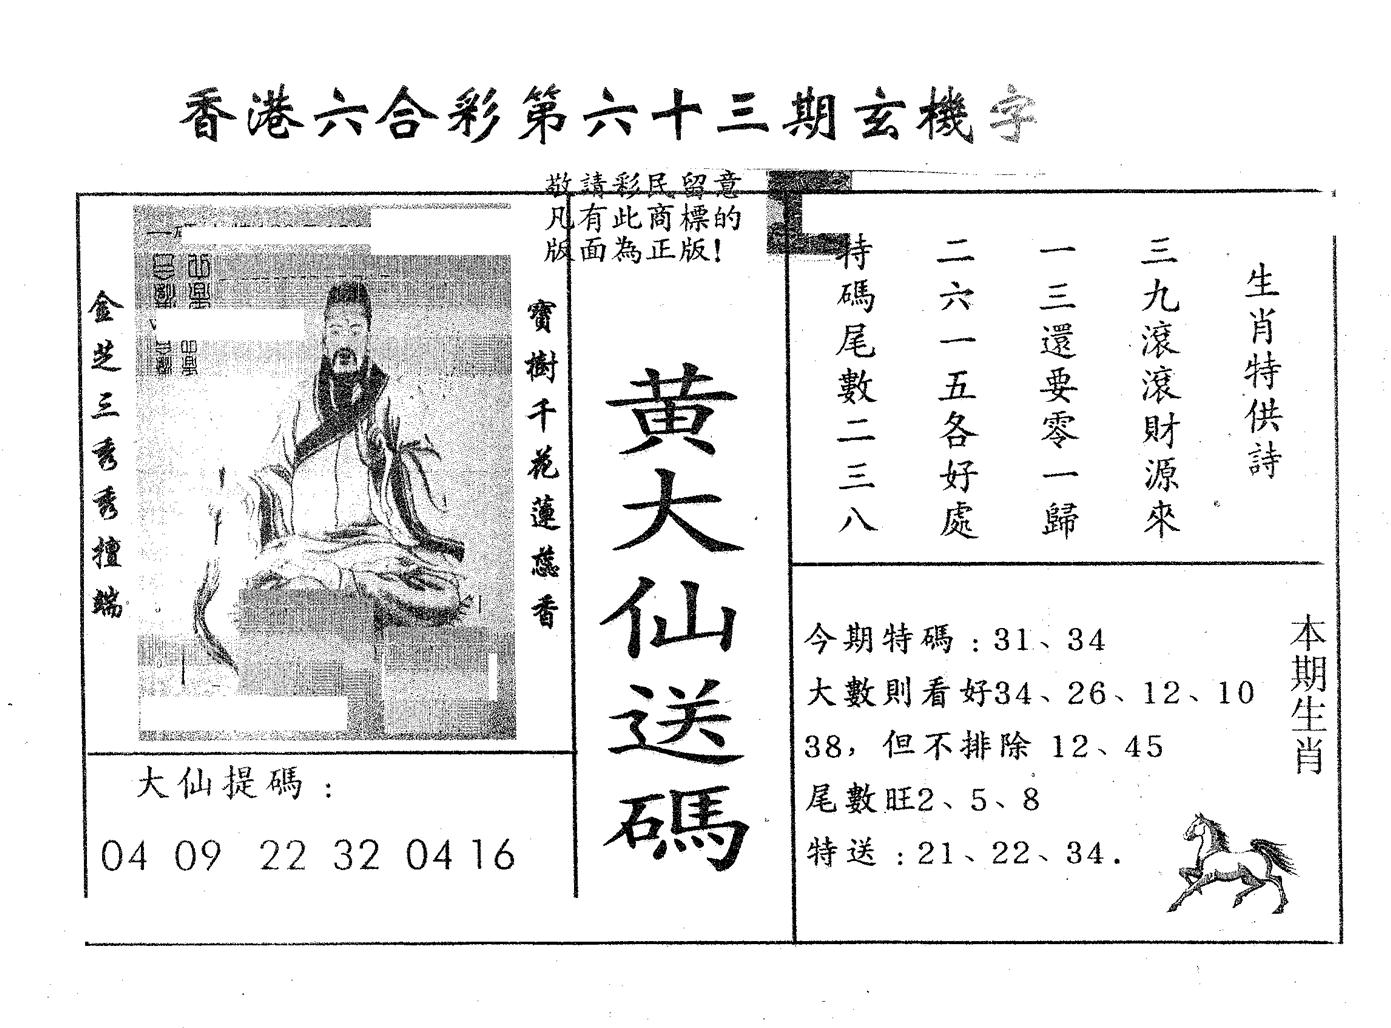 香港六合彩第六十三期玄機字
敬請彩民留意
凡有此商標的
版面為正版!
寶樹千花蓮蕊香
金芝三秀秀擅端
大仙提碼：
04 09 22 32 04 16
黄大仙送碼
生肖特供詩
三九滾滾財源來
一三還要零一歸
二六一五各好處
特碼尾數二三八
本期生肖
今期特碼：31、34
大數則看好34、26、12、10
38，但不排除 12、45
尾數旺2、5、8
特送：21、22、34.